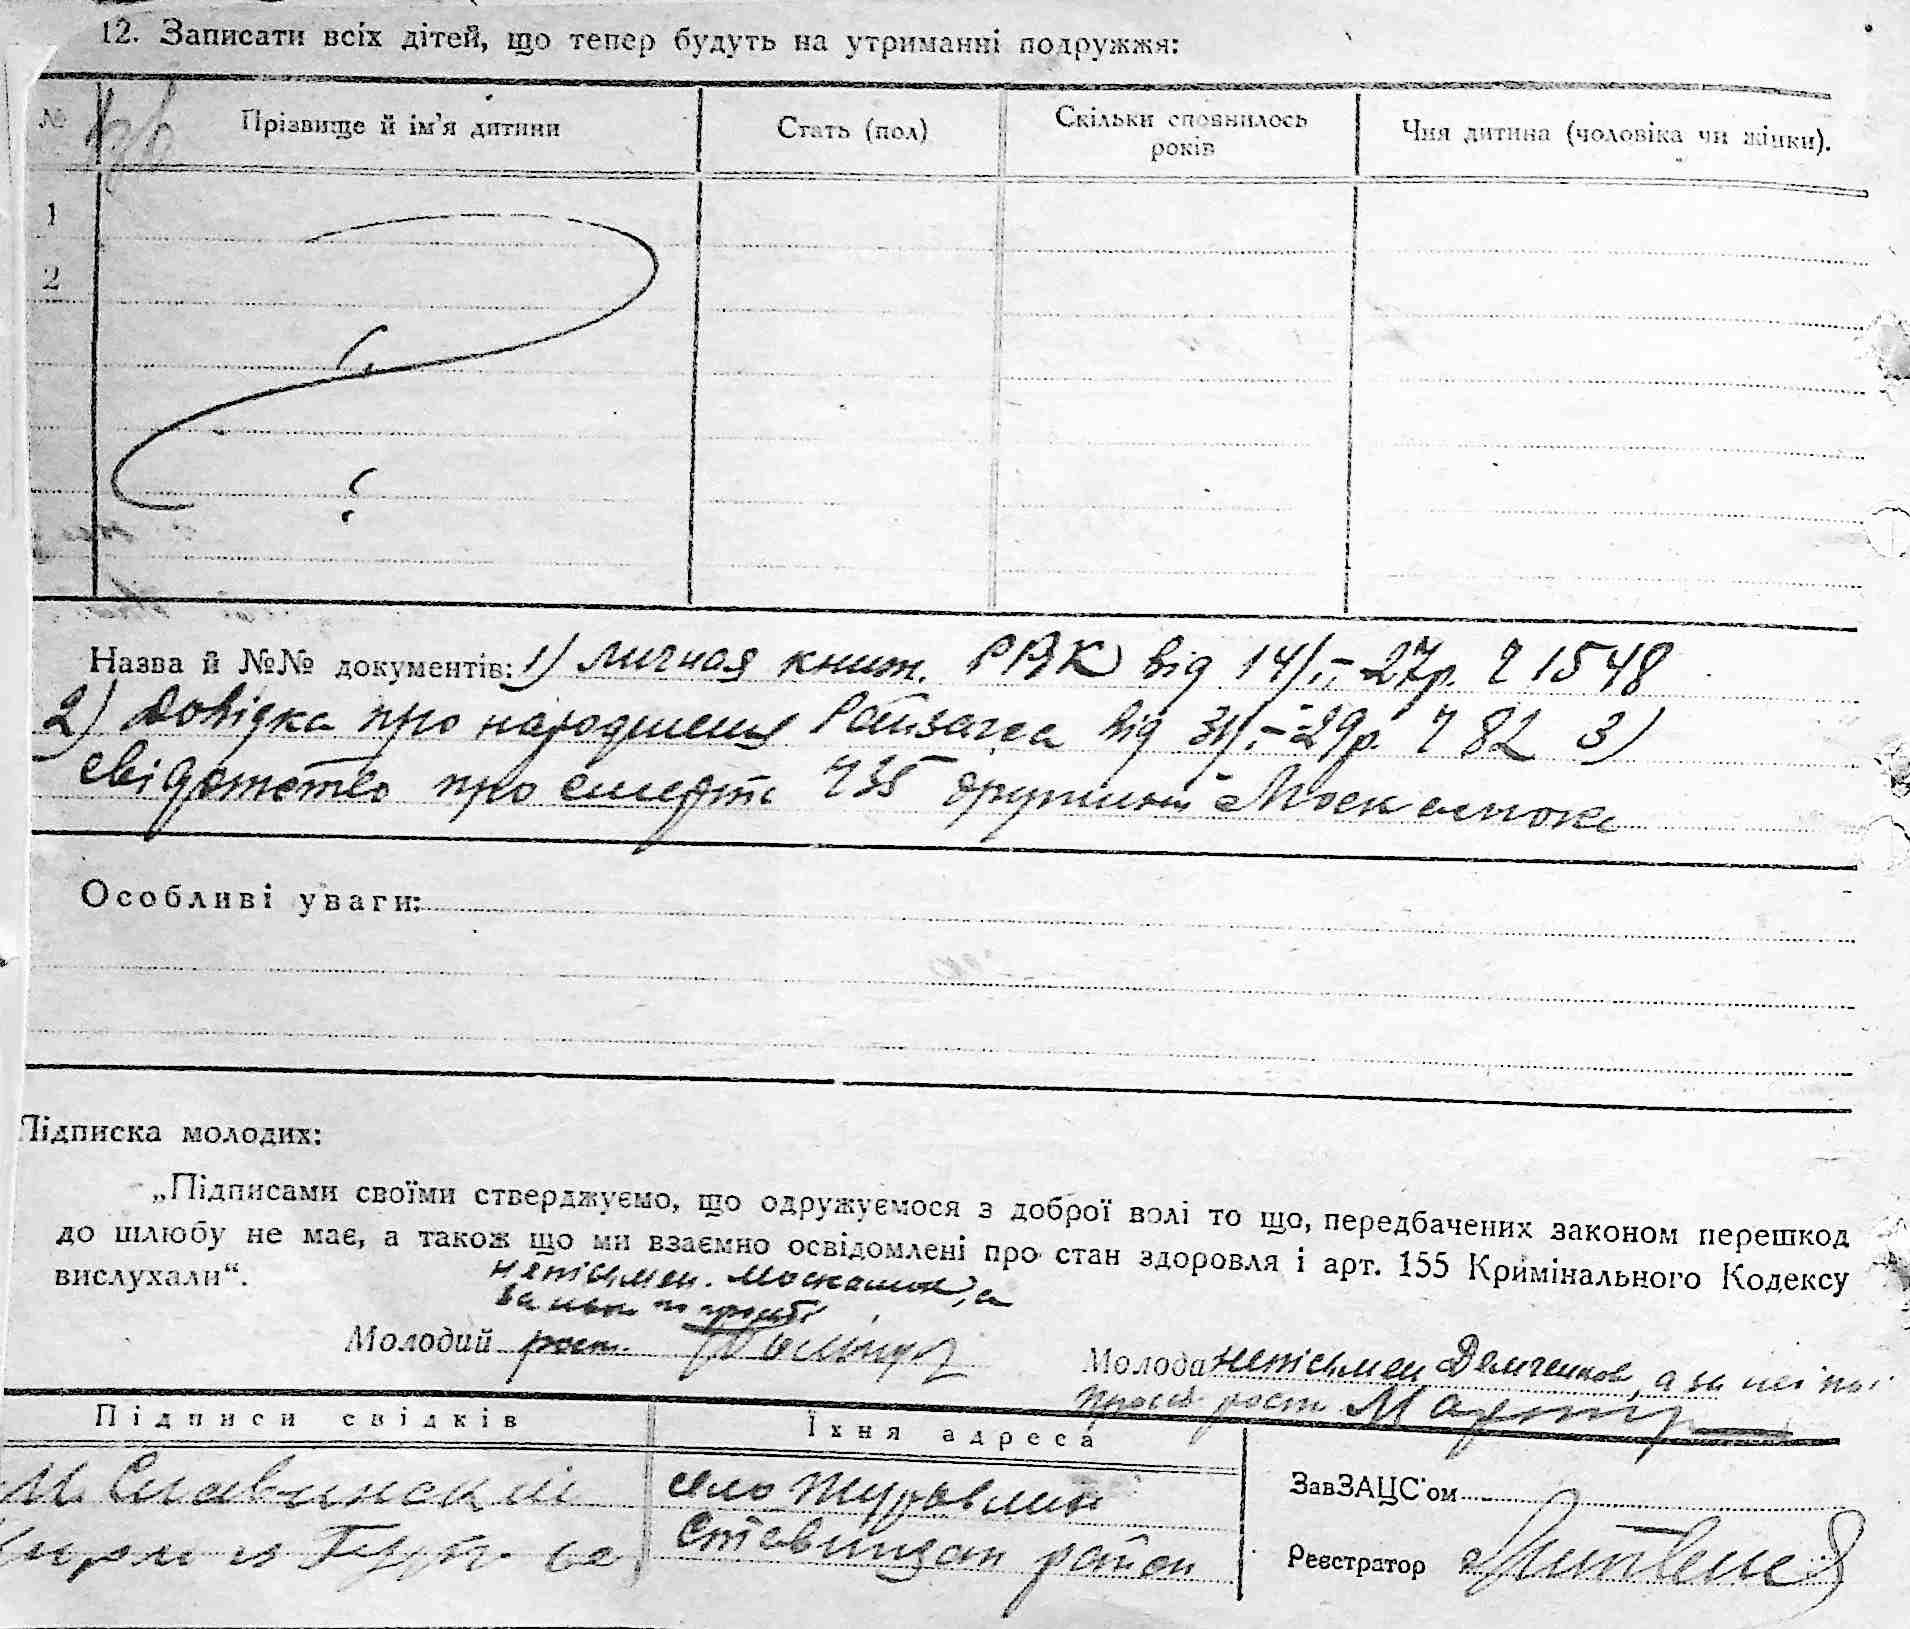 12. Записати всіх дітей, що тепер будуть на утриманні подружжя:
№ Прізвище й ім'я дитини Стать (пол) Скільки сповнилось років Чия дитина (чоловіка чи жінки).
1
2
Назва й №№ документів: 1) личная книж. РВК від 14/ 27р. Ч 1548
2) Довідка про народження від 29р. Ч 82 3)
свідотство про смерть Ч 35 дружини
Особливі уваги:
Підписка молодих:
„Підписами своїми стверджуємо, що одружуємося з доброї волі то що, передбачених законом перешкод
до шлюбу не має, а також що ми взаємно освідомлені про стан здоров'я і арт. 155 Кримінального Кодексу
вислухали“.
непісьмен. а
Молодий рост.
Молода непісьмен а за неї
рост
Підписи свідків Їхня адреса
М. Славинский село
район
ЗавЗАЦС'ом
Реєстратор